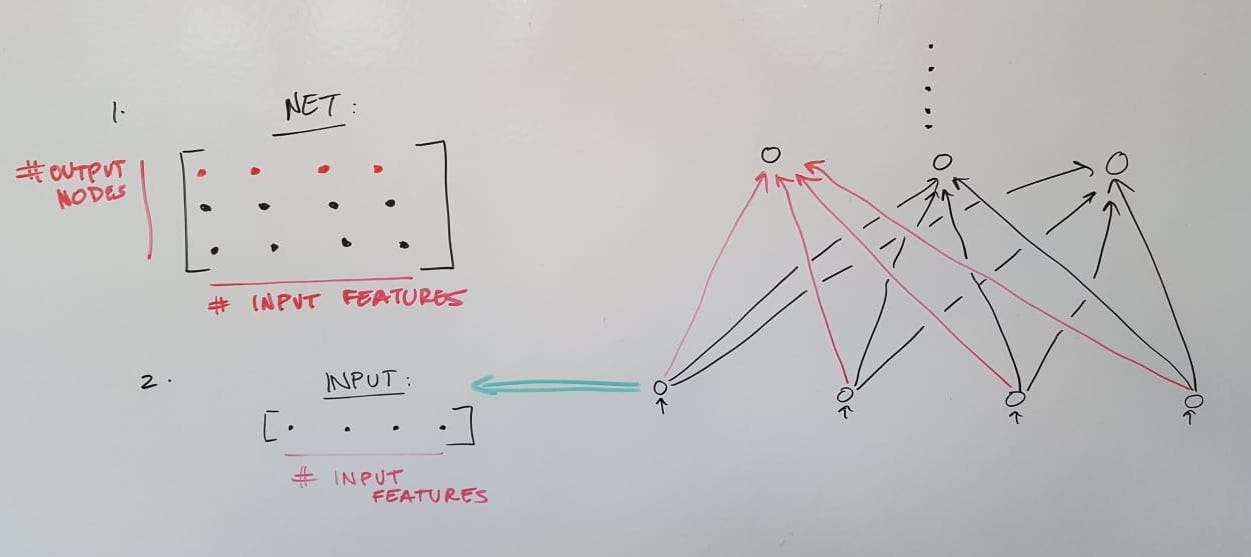 1.
NET:
# OUTPUT
NODES
# INPUT FEATURES
2.
INPUT:
# INPUT
FEATURES